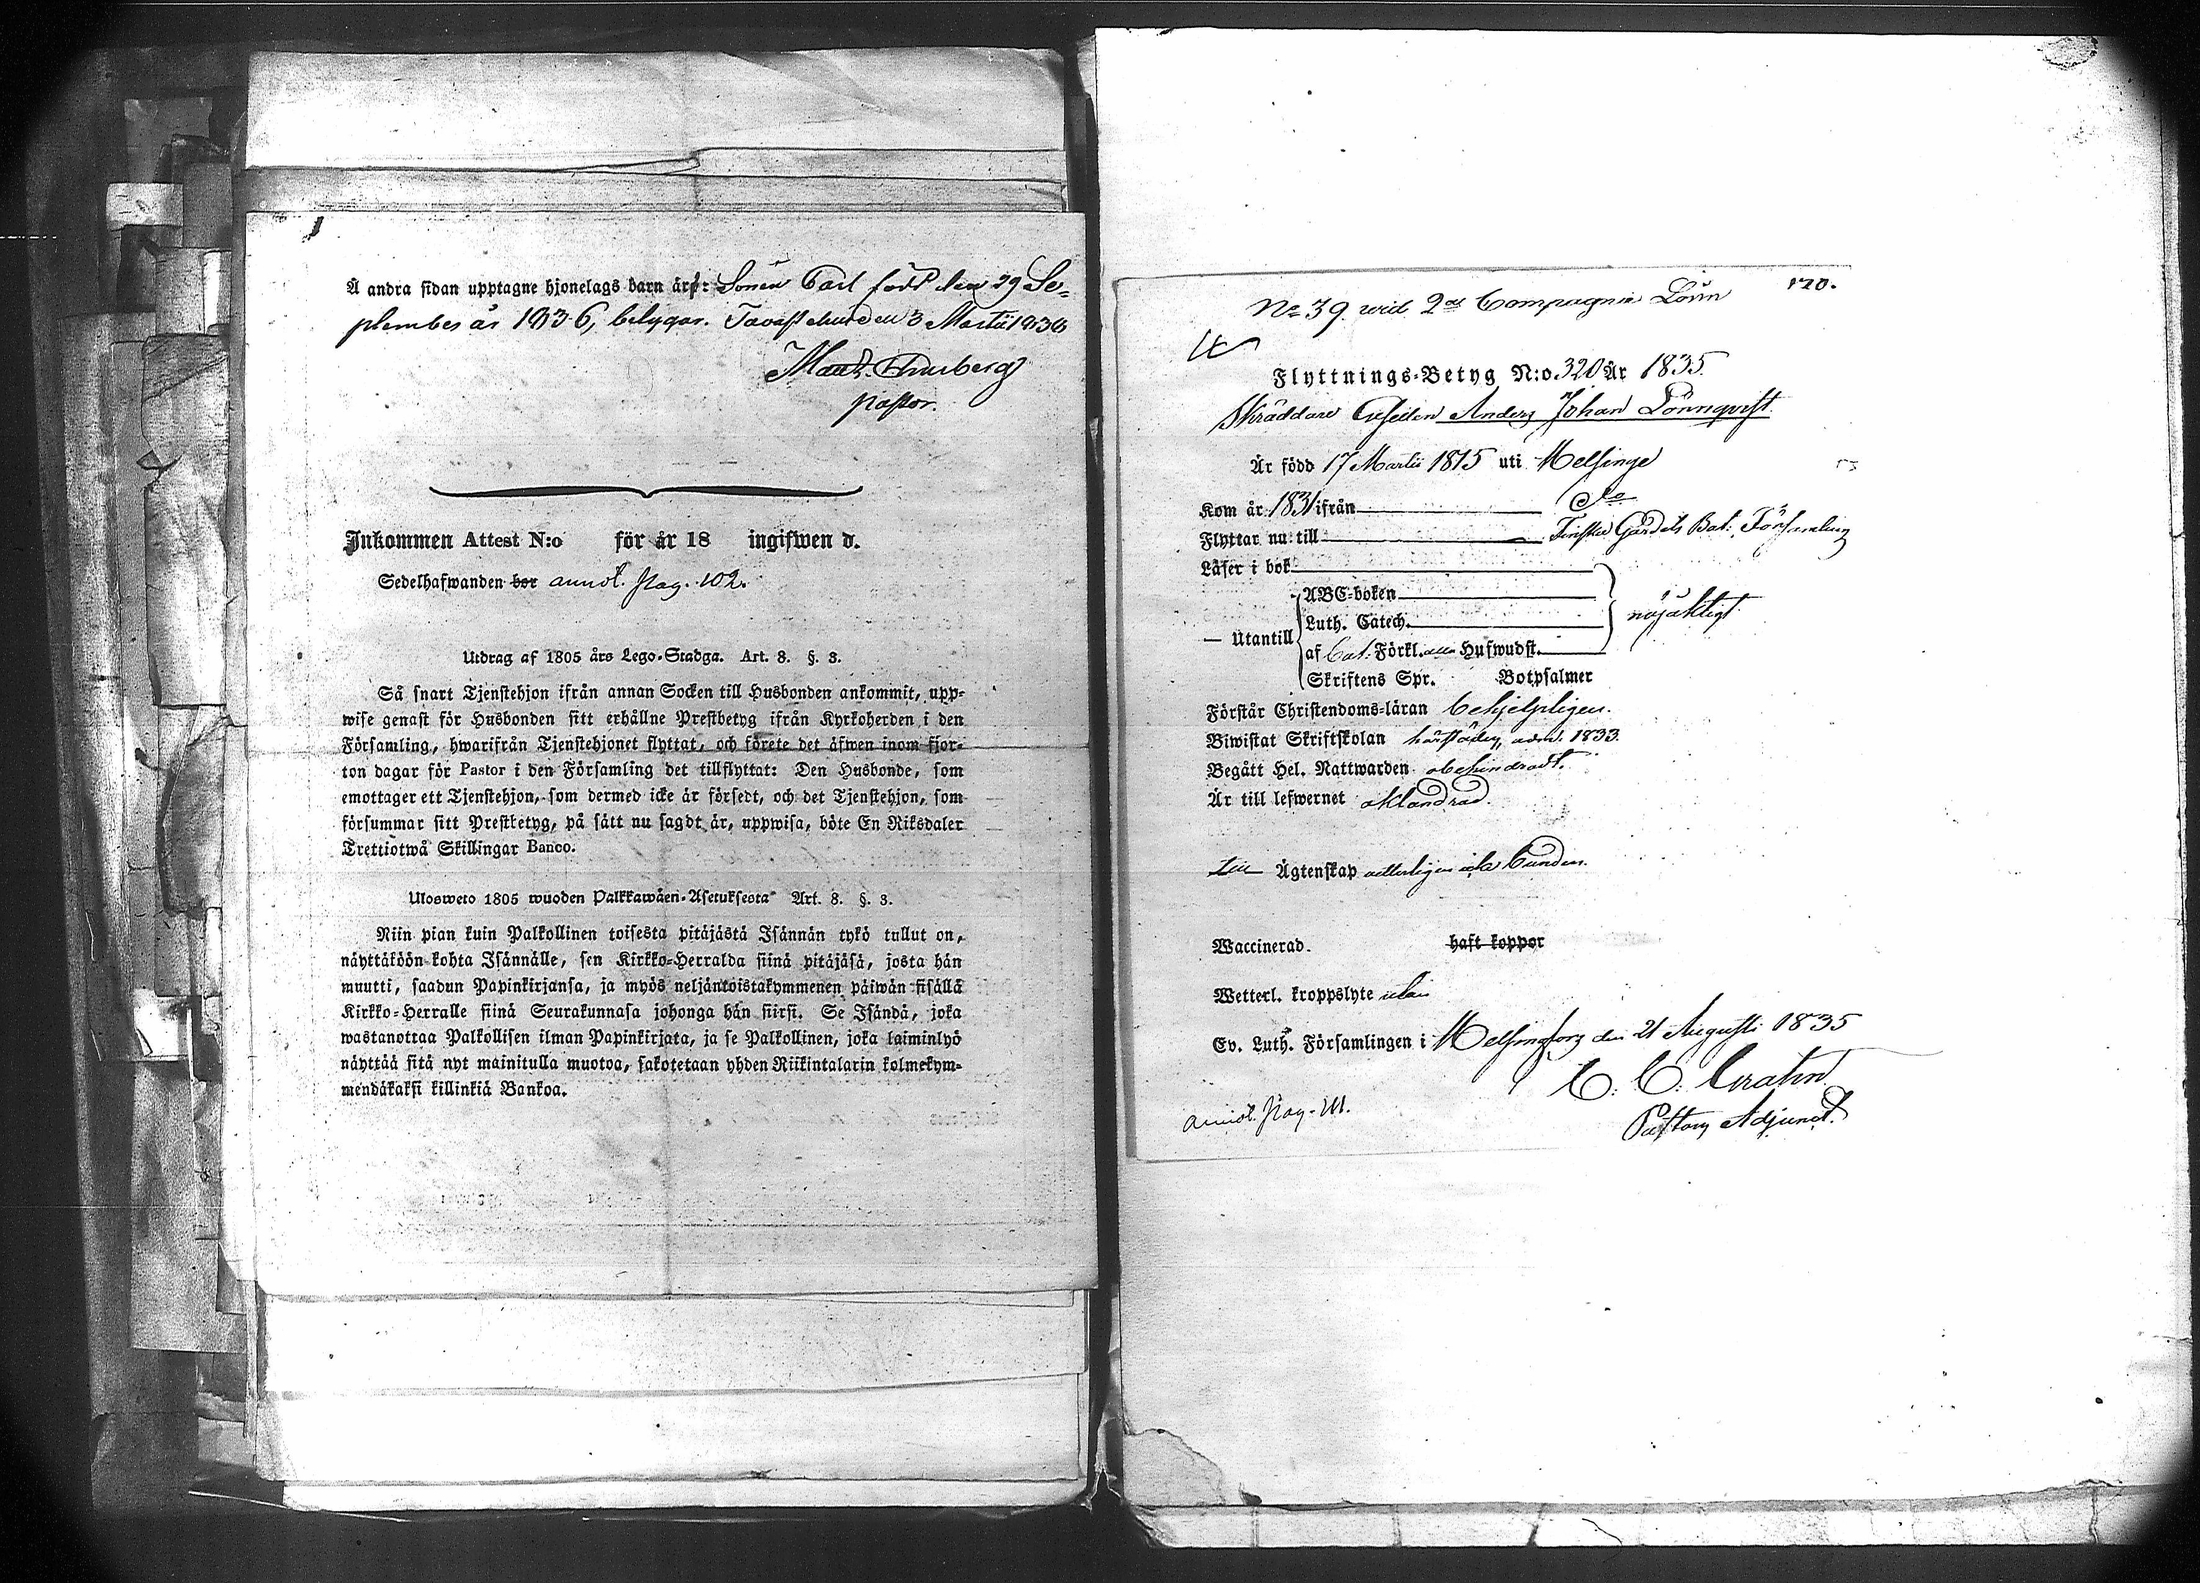 Å andra sidan upptagne hjonelags barn är: Sonen Carl född den 29 Se-
ptember år 1836, betygar. Tavastehus den 3 Martii 1836
pastor.
Inkommen Attest N:o för år 18 ingifwen d.
Sedelhafwanden bor annot. pag. 102.
Utdrag af 1805 års Lego-Stadga. Art. 8. §. 3.
Så snart Tjenstehjon ifrån annan Socken till Husbonden ankommit, upp-
wise genast för Husbonden sitt erhållne Prestbetyg ifrån Kyrkoherden i den
Församling, hwarifrån Tjenstehjonet flyttat, och förete det äfwen inom fjor-
ton dagar för Pastor i den Församling det tillflyttat: Den Husbonde, som
emottager ett Tjenstehjon, som dermed icke är försedt, och det Tjenstehjon, som
försummar sitt Prestbetyg, på sätt nu sagdt är, uppwisa, böte En Riksdaler
Trettiotwå Skillingar Banco.
Ulosweto 1805 wuoden Palkkawäen-Asetuksesta Art. 8. §. 3.
Niin pian kuin Palkollinen toisesta pitäjästä Isännän tykö tullut on,
näyttäköön kohta Isännälle, sen Kirkko-Herralda siinä pitäjäsä, josta hän
muutti, saadun Papinkirjansa, ja myös neljäntoistakymmenen päiwän sisällä
Kirkko-Herralle siinä Seurakunnasa johonga hän siirsi. Se Isändä, joka
wastanottaa Palkollisen ilman Papinkirjata, ja se Palkollinen, joka laiminlyö
näyttää sitä nyt mainitulla muotoa, sakotetaan yhden Riikintalarin kolmekym-
mendäkaksi killinkiä Bankoa.
170.
No 39. wid 2de Compagnie Lönn
Flyttnings-Betyg N:o 320 År 1835.
Skräddare Gesellen Anders Johan Lönnqvist.
Är född 17 Martii 1815 uti Helsinge
Kom år 1831 ifrån Do
Flyttar nu till Finska Gardets Bat: Församling
Läser i bok
ABC-boken
Luth. Catech.
nöjaktigt
— Utantill
af Cat: Förkl. Hufwudst.
Skriftens Spr. Botpsalmer
Förstår Christendoms-läran behjelpligen.
Biwistat Skriftskolan härstädes, adm. 1833.
Begått Hel. Nattwarden obehindradt.
Är till lefwernet oklandrad.
till Ägtenskap wetterligen icke bunden.
Waccinerad. haft koppor
Wetterl. kroppslyte utan
Ev. Luth. Församlingen i Helsingfors den 21 Augusti 1835
Pastors Adjunct.
annot. pag. 111.